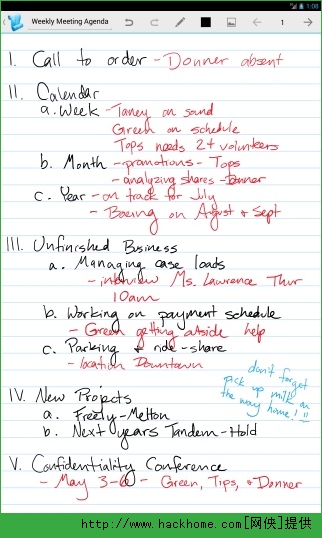 Weekly Meeting Agenda
1
1:08
I. Call to order - Donner absent
II. Calendar
a. Week - Taney on sound
Green on schedule
Tops needs 2+ volunteers
b. Month - promotions - Tops
- analyzing shares - Donner
c. Year - on track for July
- Boeing on August & Sept
III. Unfinished Business
a. Managing case loads
- interview Ms. Lawrence Thur
10am
b. Working on payment schedule
- Green getting outside help
c. Parking & ride-share
- location Downtown
don't forget
pick up milk on
the way home! !!
IV. New Projects
a. Freely - Melton
b. Next years Tandem - Hold
V. Confidentiality Conference
- May 3-6 - Green, Tips, & Donner
http://www.hackhome.com[网侠]提供